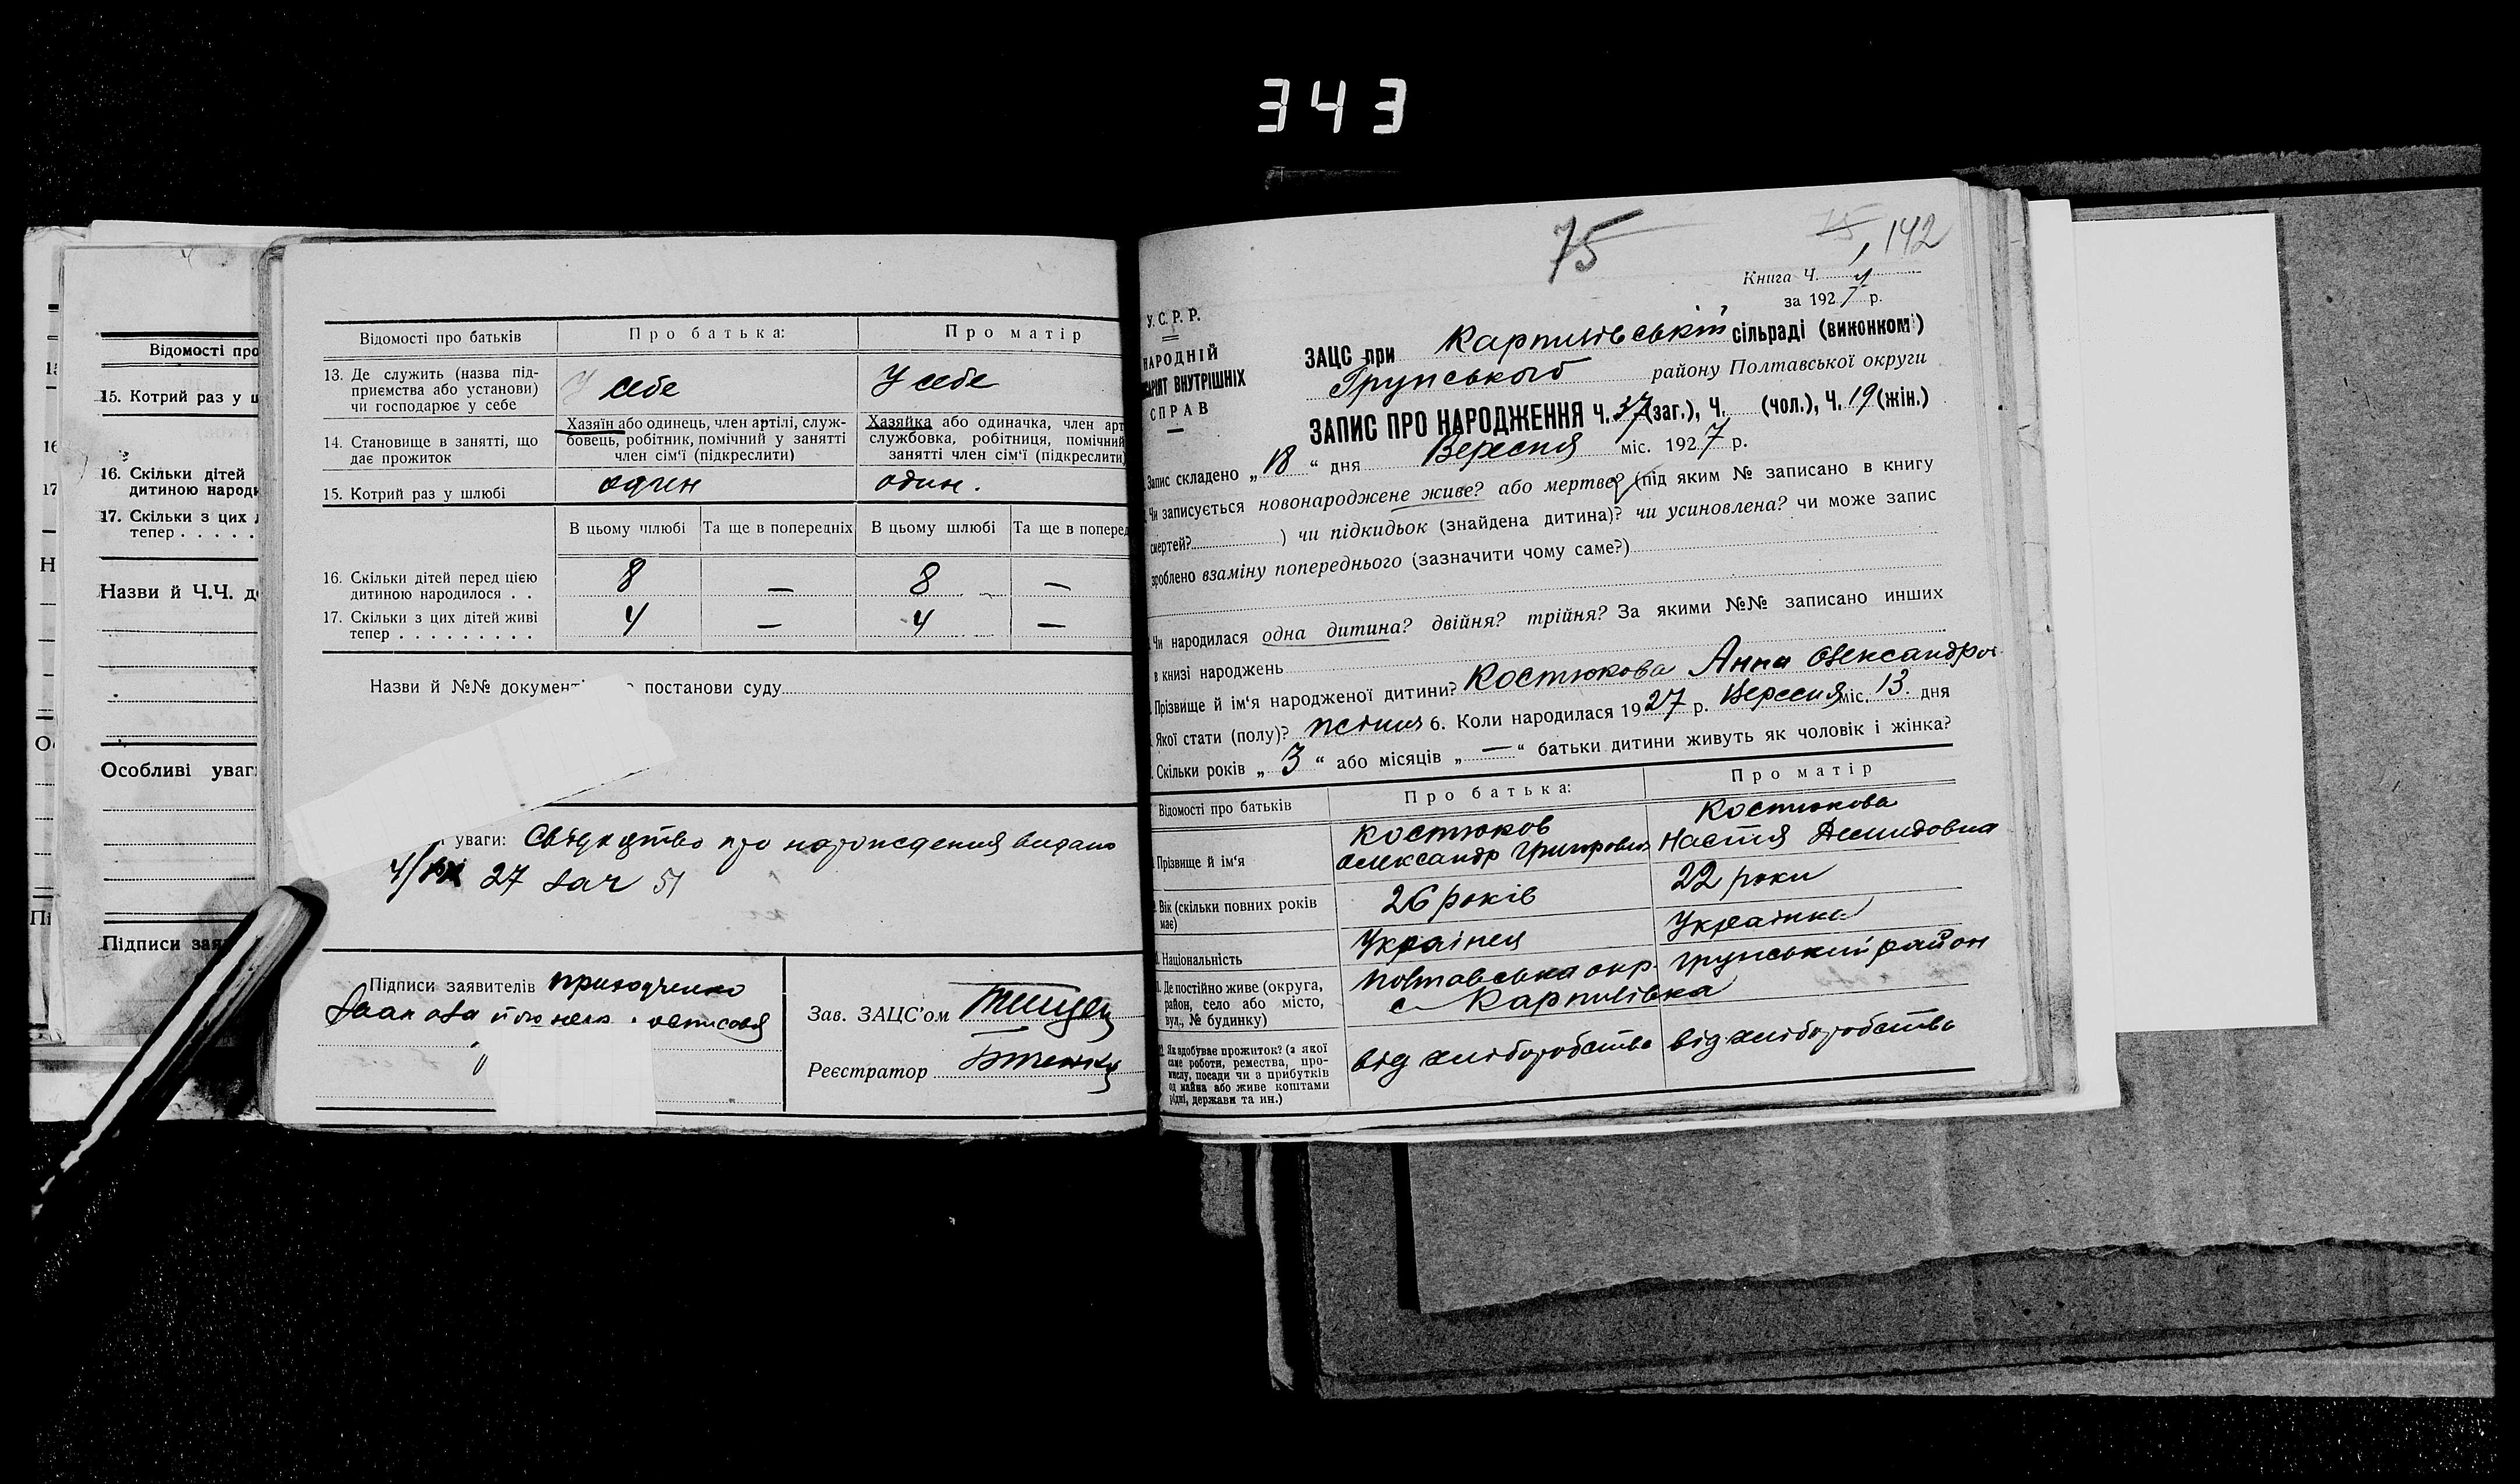 343
Відомості про
15. Котрий раз у ш
16. Скільки дітей
дитиною народ
17. Скільки з цих
тепер . . . . .
Назви й Ч.Ч. д
Особливі уваг
Підписи зая
Відомості про батьків Про батька: Про матір
13. Де служить (назва під-
приємства або установи)
чи господарює у себе
У себе У себе
14. Становище в занятті, що
дає прожиток
Хазяїн або одинець, член артілі, служ-
бовець, робітник, помічний у занятті
член сім'ї (підкреслити)
Хазяйка або одиначка, член арт
службовка, робітниця, помічний
занятті член сім'ї (підкреслити)
15. Котрий раз у шлюбі один один.
В цьому шлюбі Та ще в попередніх В цьому шлюбі Та ще в поперед
16. Скільки дітей перед цією
дитиною народилося . . 8 — 8 —
17. Скільки з цих дітей живі
тепер . . . . . . . . . 4 — 4 —
Назви й №№ документі постанови суду
уваги: Свідуцтво про нарождения видано
27 51
Підписи заявителів Приходченко
Зав. ЗАЦС'ом
Реєстратор
75
75 142
Книга Ч.
за 1927 р.
У.С.Р.Р.
НАРОДНІЙ
АРІЯТ ВНУТРІШНІХ
СПРАВ
ЗАЦС при Карпилівській сільраді (виконкомі)
Грунського району Полтавської округи
ЗАПИС ПРО НАРОДЖЕННЯ Ч. 37 (заг.), Ч. (чол.), Ч. 19 (жін.)
Запис складено „18“ дня Вересня міс. 1927 р.
Чи записується новонароджене живе? або мертве? (під яким № записано в книгу
смертей? ) чи підкидьок (знайдена дитина)? чи усиновлена? чи може запис
зроблено взаміну попереднього (зазначити чому саме?)
Чи народилася одна дитина? двійня? трійня? За якими №№ записано инших
в книзі народжень
Прізвище й ім'я народженої дитини? Костюкова Анна Олександров
Якої стати (полу)? жіния 6. Коли народилася 1927 р. Вересня міс. 13. дня
Скільки років „3“ або місяців „—“ батьки дитини живуть як чоловік і жінка?
Відомості про батьків Про батька: Про матір
Прізвище й ім'я
Костюков
Олександр Григорович
Костюкова
Настя Демидовна
Вік (скільки повних років
має)
26 років 22 роки
Національність Українец Українка
Де постійно живе (округа,
район, село або місто,
вул., № будинку)
Полтавська окр. Грунський район
с. Карпилівка
Як здобуває прожиток? (з якої
саме роботи, ремества, про-
мислу, посади чи з прибутків
од майна або живе коштами
рідні, держави та ин.)
від хліборобства від хліборобства